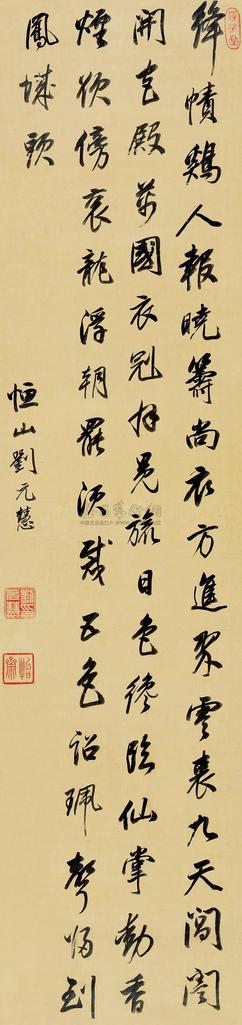 絳幘鷄人報曉籌尚衣方進翠雲裘九天閶闔
開宮殿萬國衣冠拜冕旒日色纔臨仙掌動香
煙欲傍袞龍浮朝罷須裁五色詔珮聲歸到
鳳城頭
恒山劉元慧